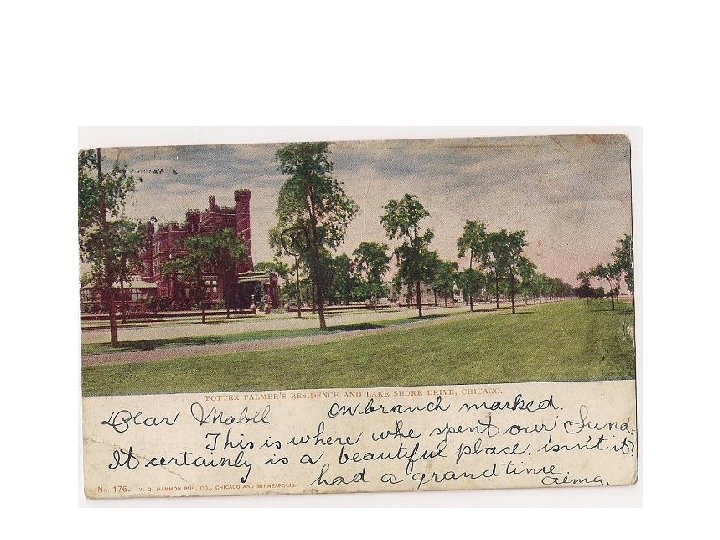 POTTER PALMER'S RESIDENCE AND LAKE SHORE DRIVE, CHICAGO.
Dear Mabel on branch marked.
This is where whe spent our
It certainly is a beautiful place, isn't it
had a grand time.
Alma.
No. 176. V. O. HAMMON PUB. CO., CHICAGO AND MINNEAPOLIS.